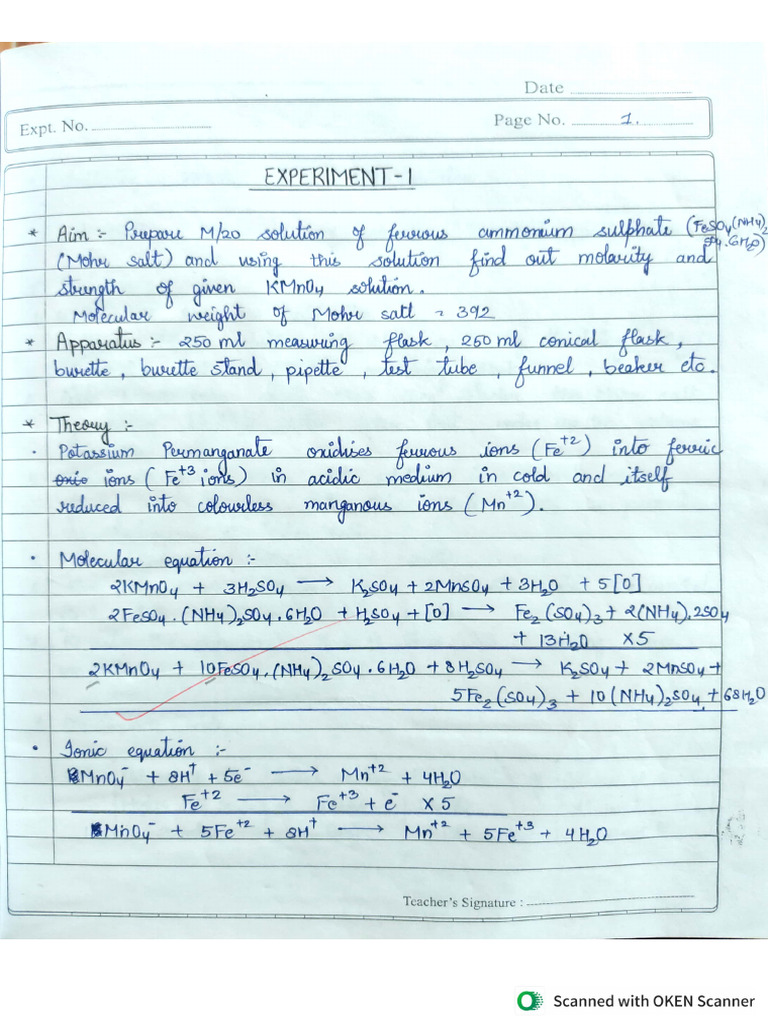 Date
Expt. No.
Page No. 1.
EXPERIMENT-1
* Aim :- Prepare M/20 solution of ferrous ammonium sulphate (FeSO4(NH4)2
SO4.6H2O)
(Mohr salt) and using this solution find out molarity and
strength of given KMnO4 solution.
Molecular weight of Mohr satl = 392
* Apparatus :- 250 ml measuring flask, 250 ml conical flask,
burette, burette stand, pipette, test tube, funnel, beaker etc.
* Theory :-
· Potassium Permanganate oxidises ferrous ions (Fe+2) into ferric
ions (Fe+3 ions) in acidic medium in cold and itself
reduced into colourless manganous ions (Mn+2).
· Molecular equation :-
2KMnO4 + 3H2SO4 → K2SO4 + 2MnSO4 + 3H2O + 5[O]
2FeSO4.(NH4)2SO4.6H2O + H2SO4 + [O] → Fe2(SO4)3 + 2(NH4).2SO4
+ 13H2O X5
2KMnO4 + 10FeSO4.(NH4)2SO4.6H2O + 8H2SO4 → K2SO4 + 2MnSO4 +
5Fe2(SO4)3 + 10(NH4)2SO4 + 68H2O
· Ionic equation :-
MnO4- + 8H+ + 5e- → Mn+2 + 4H2O
Fe+2 → Fe+3 + e- X5
MnO4- + 5Fe+2 + 8H+ → Mn+2 + 5Fe+3 + 4H2O
Teacher's Signature :
Scanned with OKEN Scanner